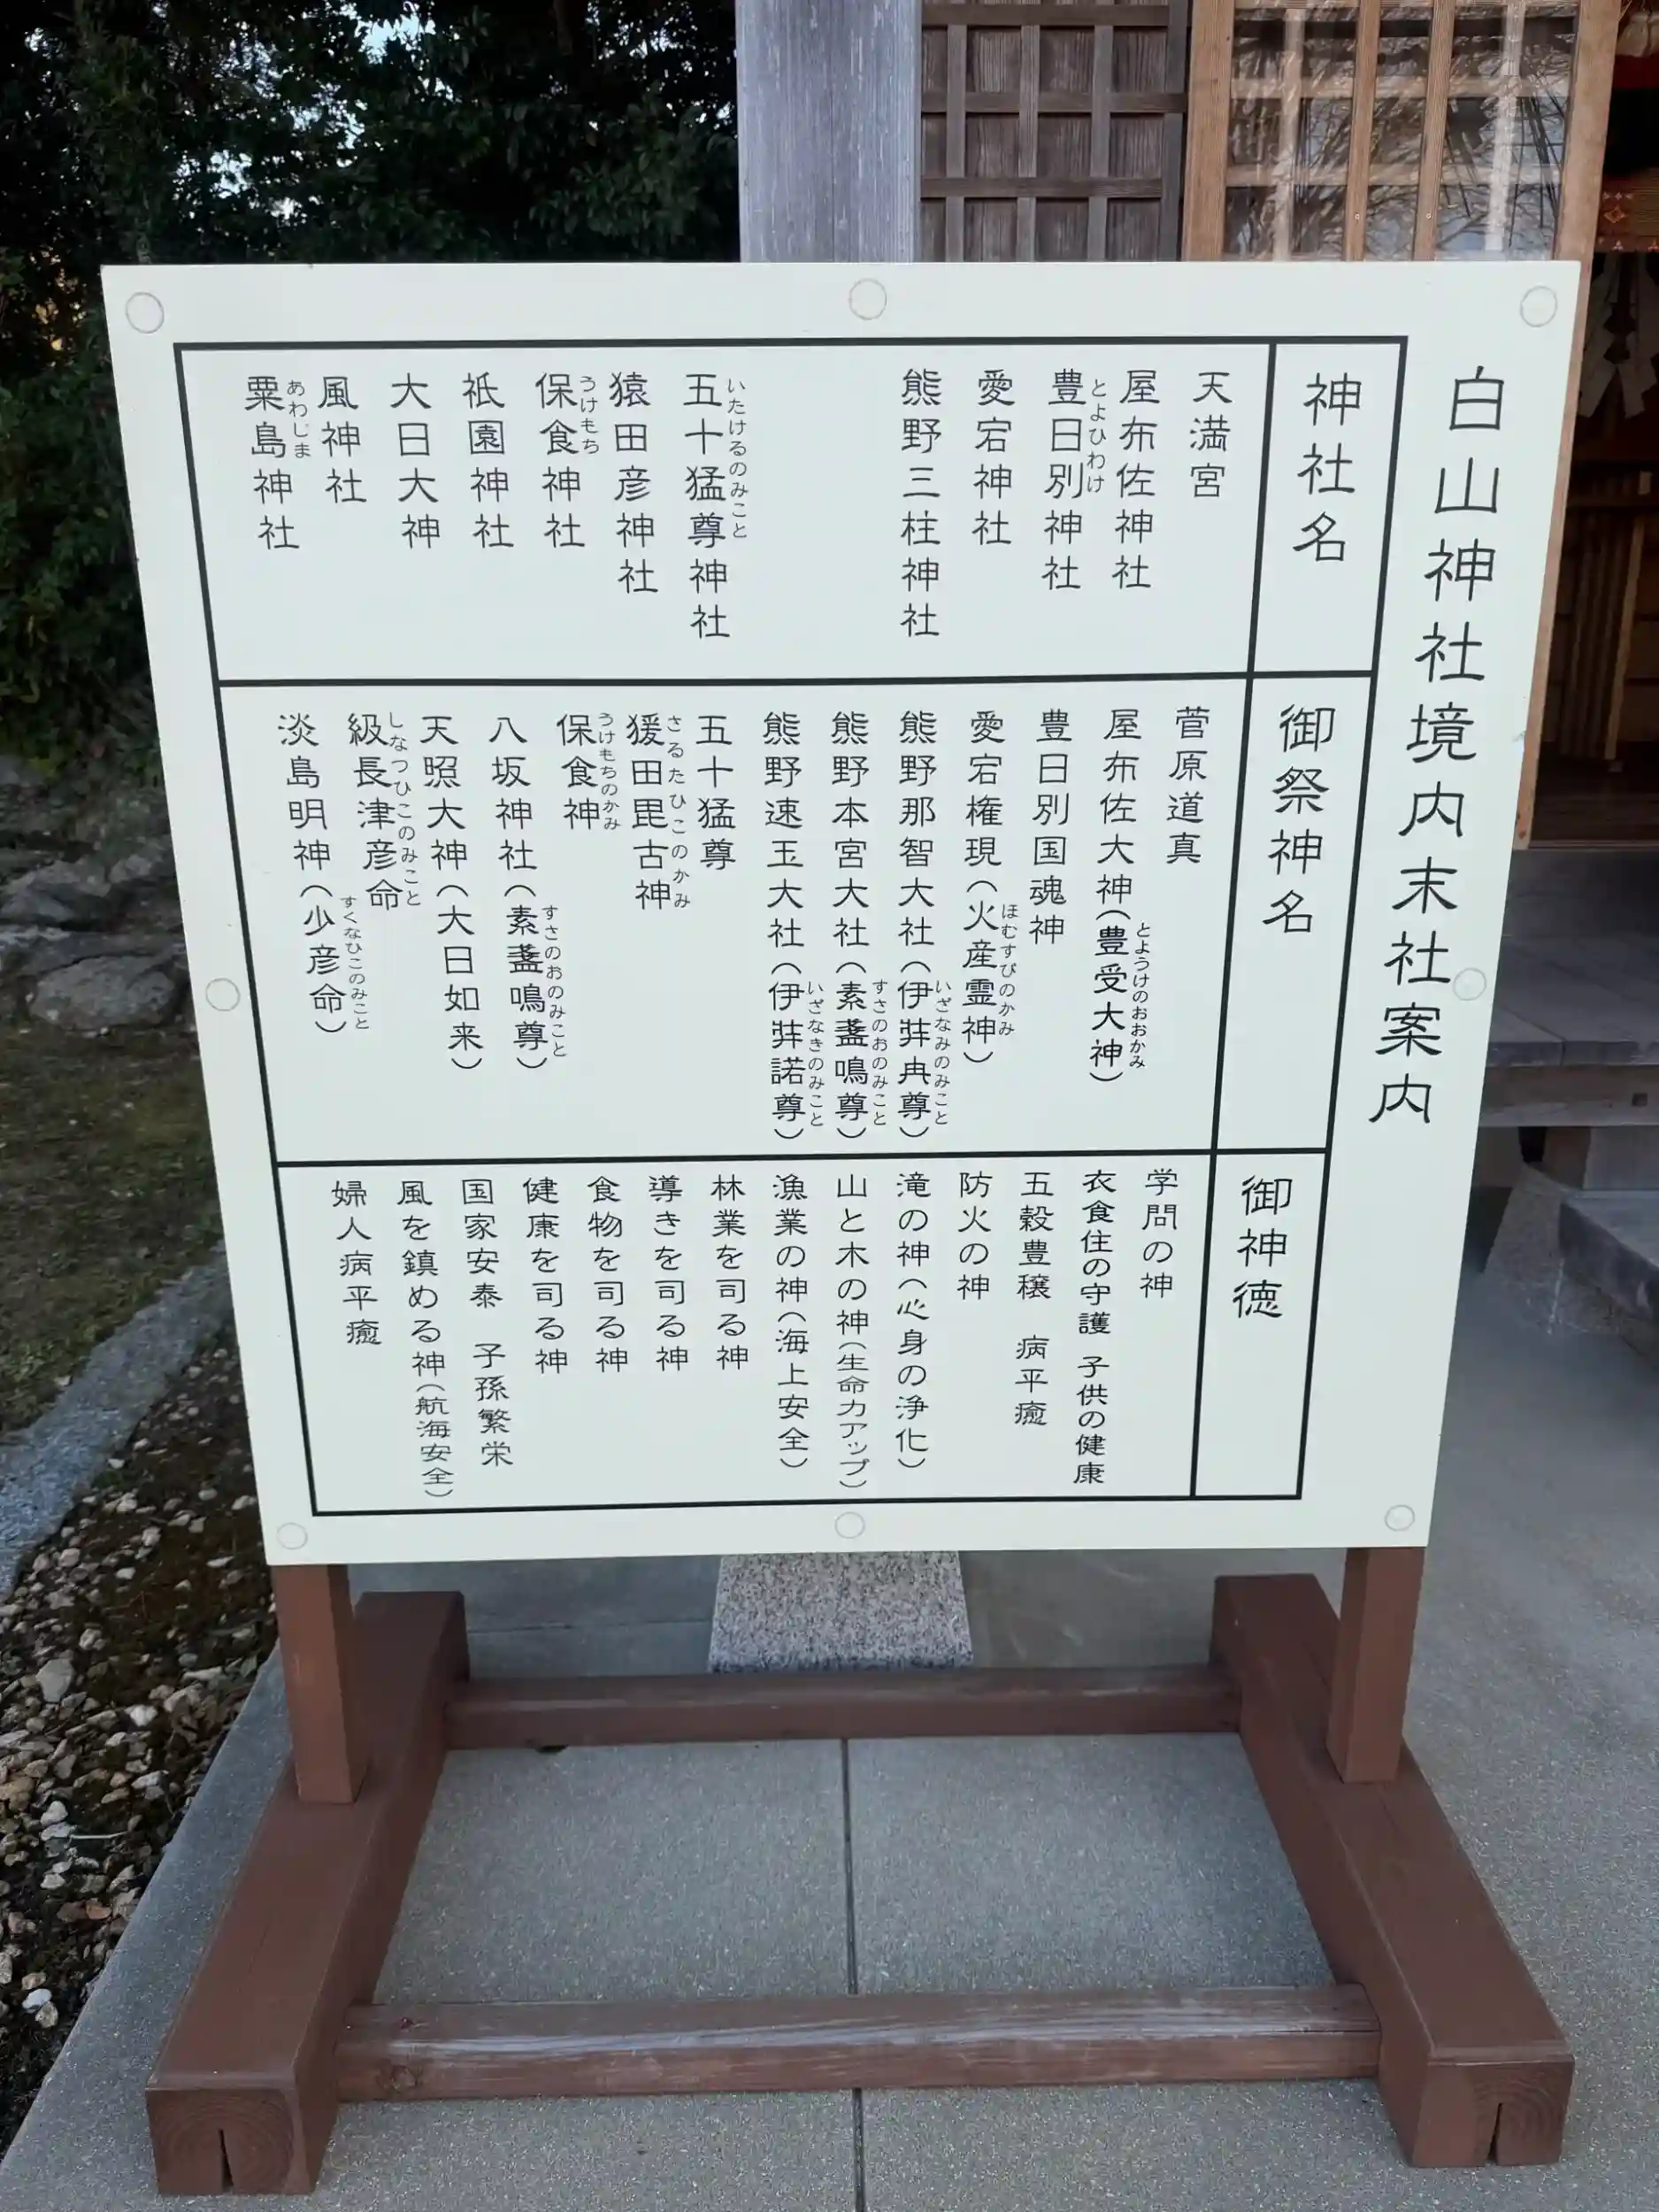 白山神社境内末社案内
神社名
天満宮
屋布佐神社
豊日別神社
とよひわけ
愛宕神社
熊野三柱神社
五十猛尊神社
いたけるのみこと
猿田彦神社
保食神社
うけもち
祇園神社
大日大神
風神社
粟島神社
あわじま
御祭神名
菅原道真
屋布佐大神(豊受大神)
とようけのおおかみ
豊日別国魂神
愛宕権現(火産霊神)
ほむすびのかみ
熊野那智大社(伊弉冉尊)
いざなみのみこと
熊野本宮大社(素盞鳴尊)
すさのおのみこと
熊野速玉大社(伊弉諾尊)
いざなきのみこと
五十猛尊
猨田毘古神
さるたひこのかみ
保食神
うけもちのかみ
八坂神社(素盞鳴尊)
すさのおのみこと
天照大神(大日如来)
級長津彦命
しなつひこのみこと
淡島明神(少彦命)
すくなひこのみこと
御神徳
学問の神
衣食住の守護 子供の健康
五穀豊穣 病平癒
防火の神
滝の神(心身の浄化)
山と木の神(生命力アップ)
漁業の神(海上安全)
林業を司る神
導きを司る神
食物を司る神
健康を司る神
国家安泰 子孫繁栄
風を鎮める神(航海安全)
婦人病平癒